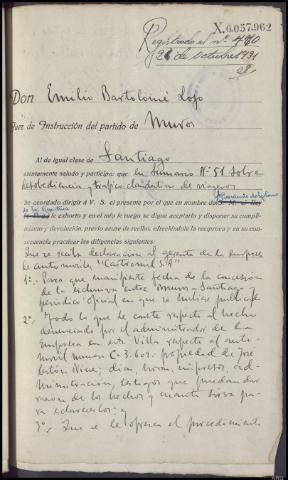 X.6.057.962
Registrado al nº 480
Don Emilio Bartolomé Lojo
Juez de Instrucción del partido de Muros
Al de igual clase de Santiago
atentamente saludo y participo que en sumario Nº 51 sobre
desobediencia y tráfico clandestino de viajeros
he acordado dirigir a V. S. el presente por el que en nombre de
le exhorto y en el mío le ruego se digne aceptarlo y disponer su cumpli-
miento y devolución, previo acuse de recibo, ofreciéndole la recíproca y en su con-
secuencia practicar las diligencias siguientes:
Que se reciba declaración al gerente de la empresa
de automóviles "Castromil S.A"
1º- Para que manifieste fecha de la concesión
de la exclusiva entre Muros y Santiago y
periódico oficial en que se hubiere publicado
2º- Todo lo que le conste respecto al hecho
denunciado por el administrador de la
Empresa en esta Villa respecto al auto-
móvil número C-3.602. propiedad de José
días, horas,
testigos que puedan dar
razón de los hechos y cuanto sirva pa-
ra esclarecerlos; y
3º- Que se le ofrezca el procedimiento